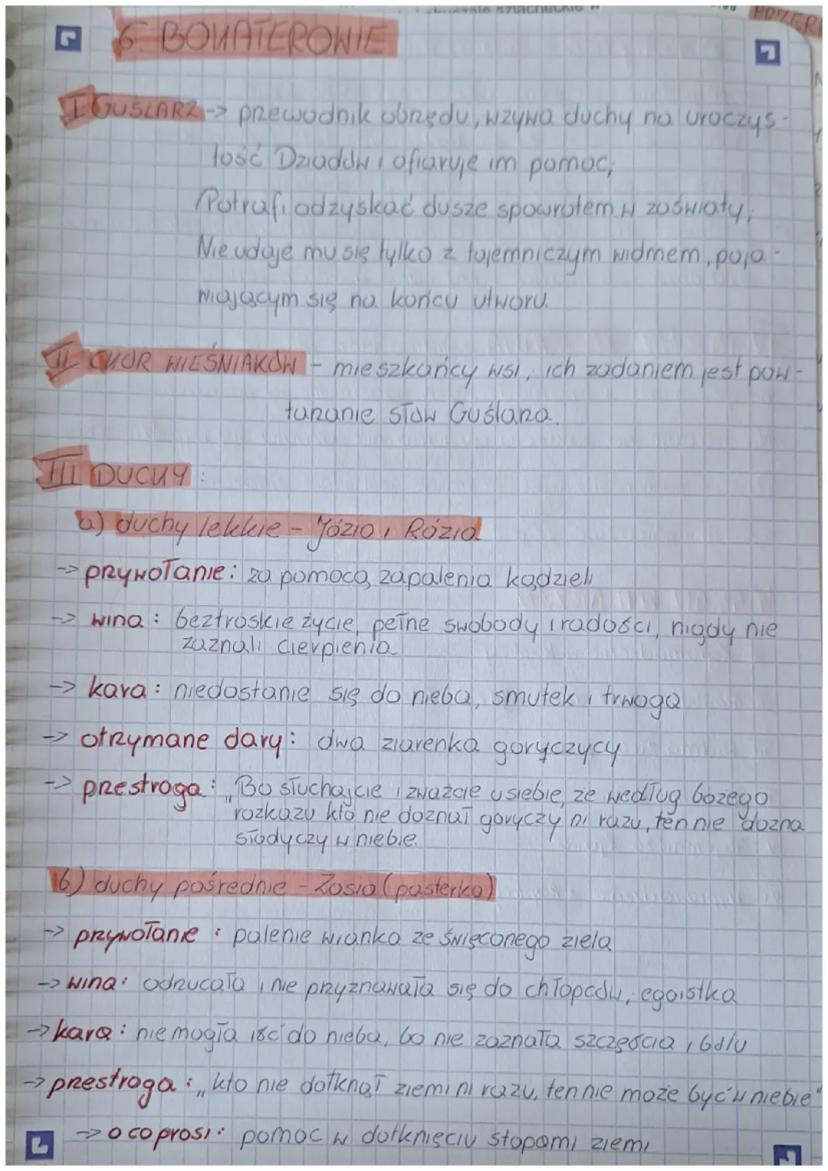 6. BOHATEROWIE
I GUŚLARZ -> przewodnik obrzędu, wzywa duchy na uroczys-
tość Dziadów i ofiaruje im pomoc;
Potrafi odzyskać dusze spowrotem w zaświaty;
Nie udaje mu się tylko z tajemniczym widmem, poja-
wiającym się na końcu utworu.
II CHÓR WIEŚNIAKÓW - mieszkańcy wsi, ich zadaniem jest pow-
tarzanie słów Guślarza.
III DUCHY:
a) duchy lekkie - Józio i Rózia
-> przywołanie: za pomocą zapalenia kądzieli
-> wina: beztroskie życie, pełne swobody i radości, nigdy nie
zaznali cierpienia
-> kara: niedostanie się do nieba, smutek i trwoga
-> otrzymane dary: dwa ziarenka goryczycy
-> przestroga: "Bo słuchajcie i zważcie u siebie, że według bożego
rozkazu kto nie doznał goryczy ni razu, ten nie dozna
słodyczy w niebie.
b) duchy pośrednie - Zosia (pasterka)
-> przywołanie: palenie wianka ze święconego ziela
-> wina: odrzucała i nie przyznawała się do chłopców, egoistka
-> kara: nie mogła iść do nieba, bo nie zaznała szczęścia i bólu
-> przestroga: "kto nie dotknął ziemi ni razu, ten nie może być w niebie"
-> o co prosi: pomoc w dotknięciu stopami ziemi